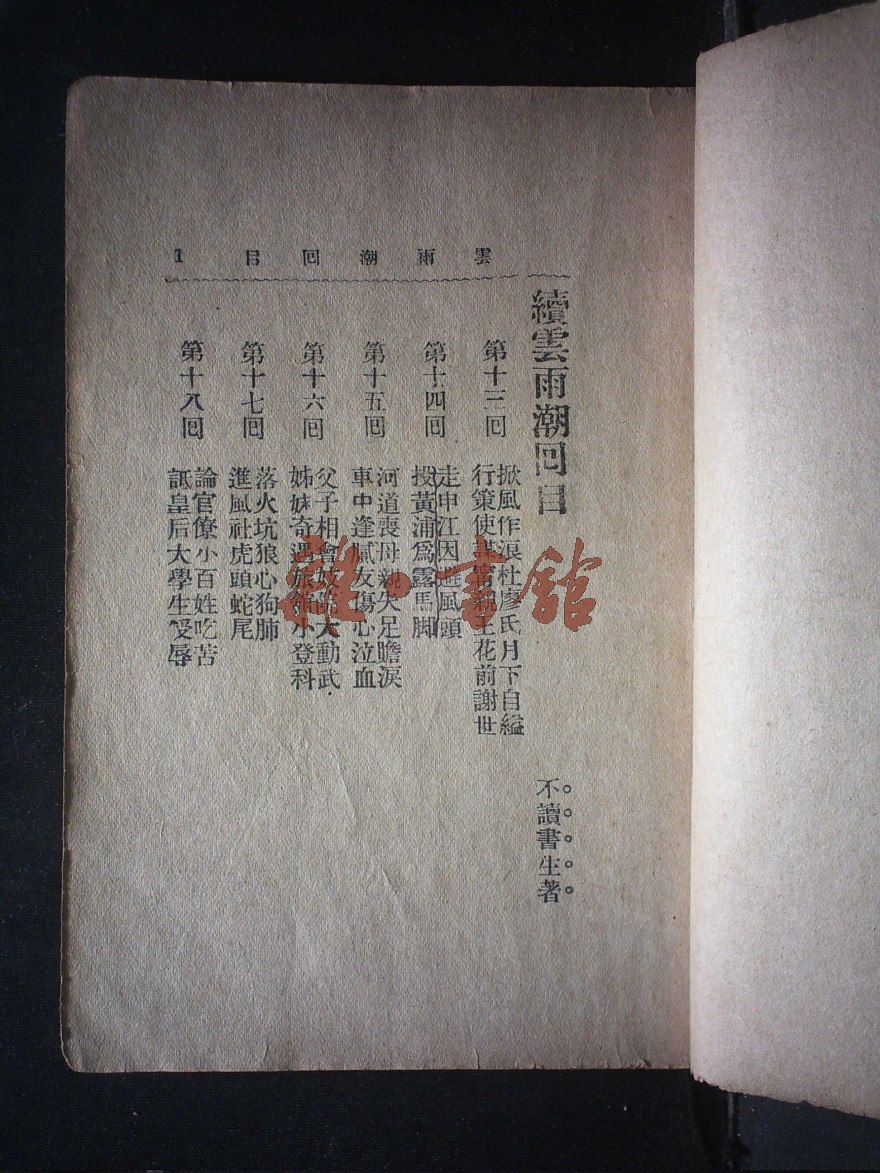 雲雨潮回目 1
續雲雨潮回目
不讀書生著
第十三回
掀風作浪杜廖氏月下自縊
行策使謀甯親王花前謝世
第十四回
走申江因避風頭
投黃浦爲露馬脚
第十五回
河道喪母親失足贍淚
車中逢膩友傷心泣血
第十六回
父子相會妓院大動武
姊妹奇遇旅館小登科
第十七回
落火坑狼心狗肺
進風社虎頭蛇尾
第十八回
論官僚小百姓吃苦
詆皇后大學生受辱
雜·書館